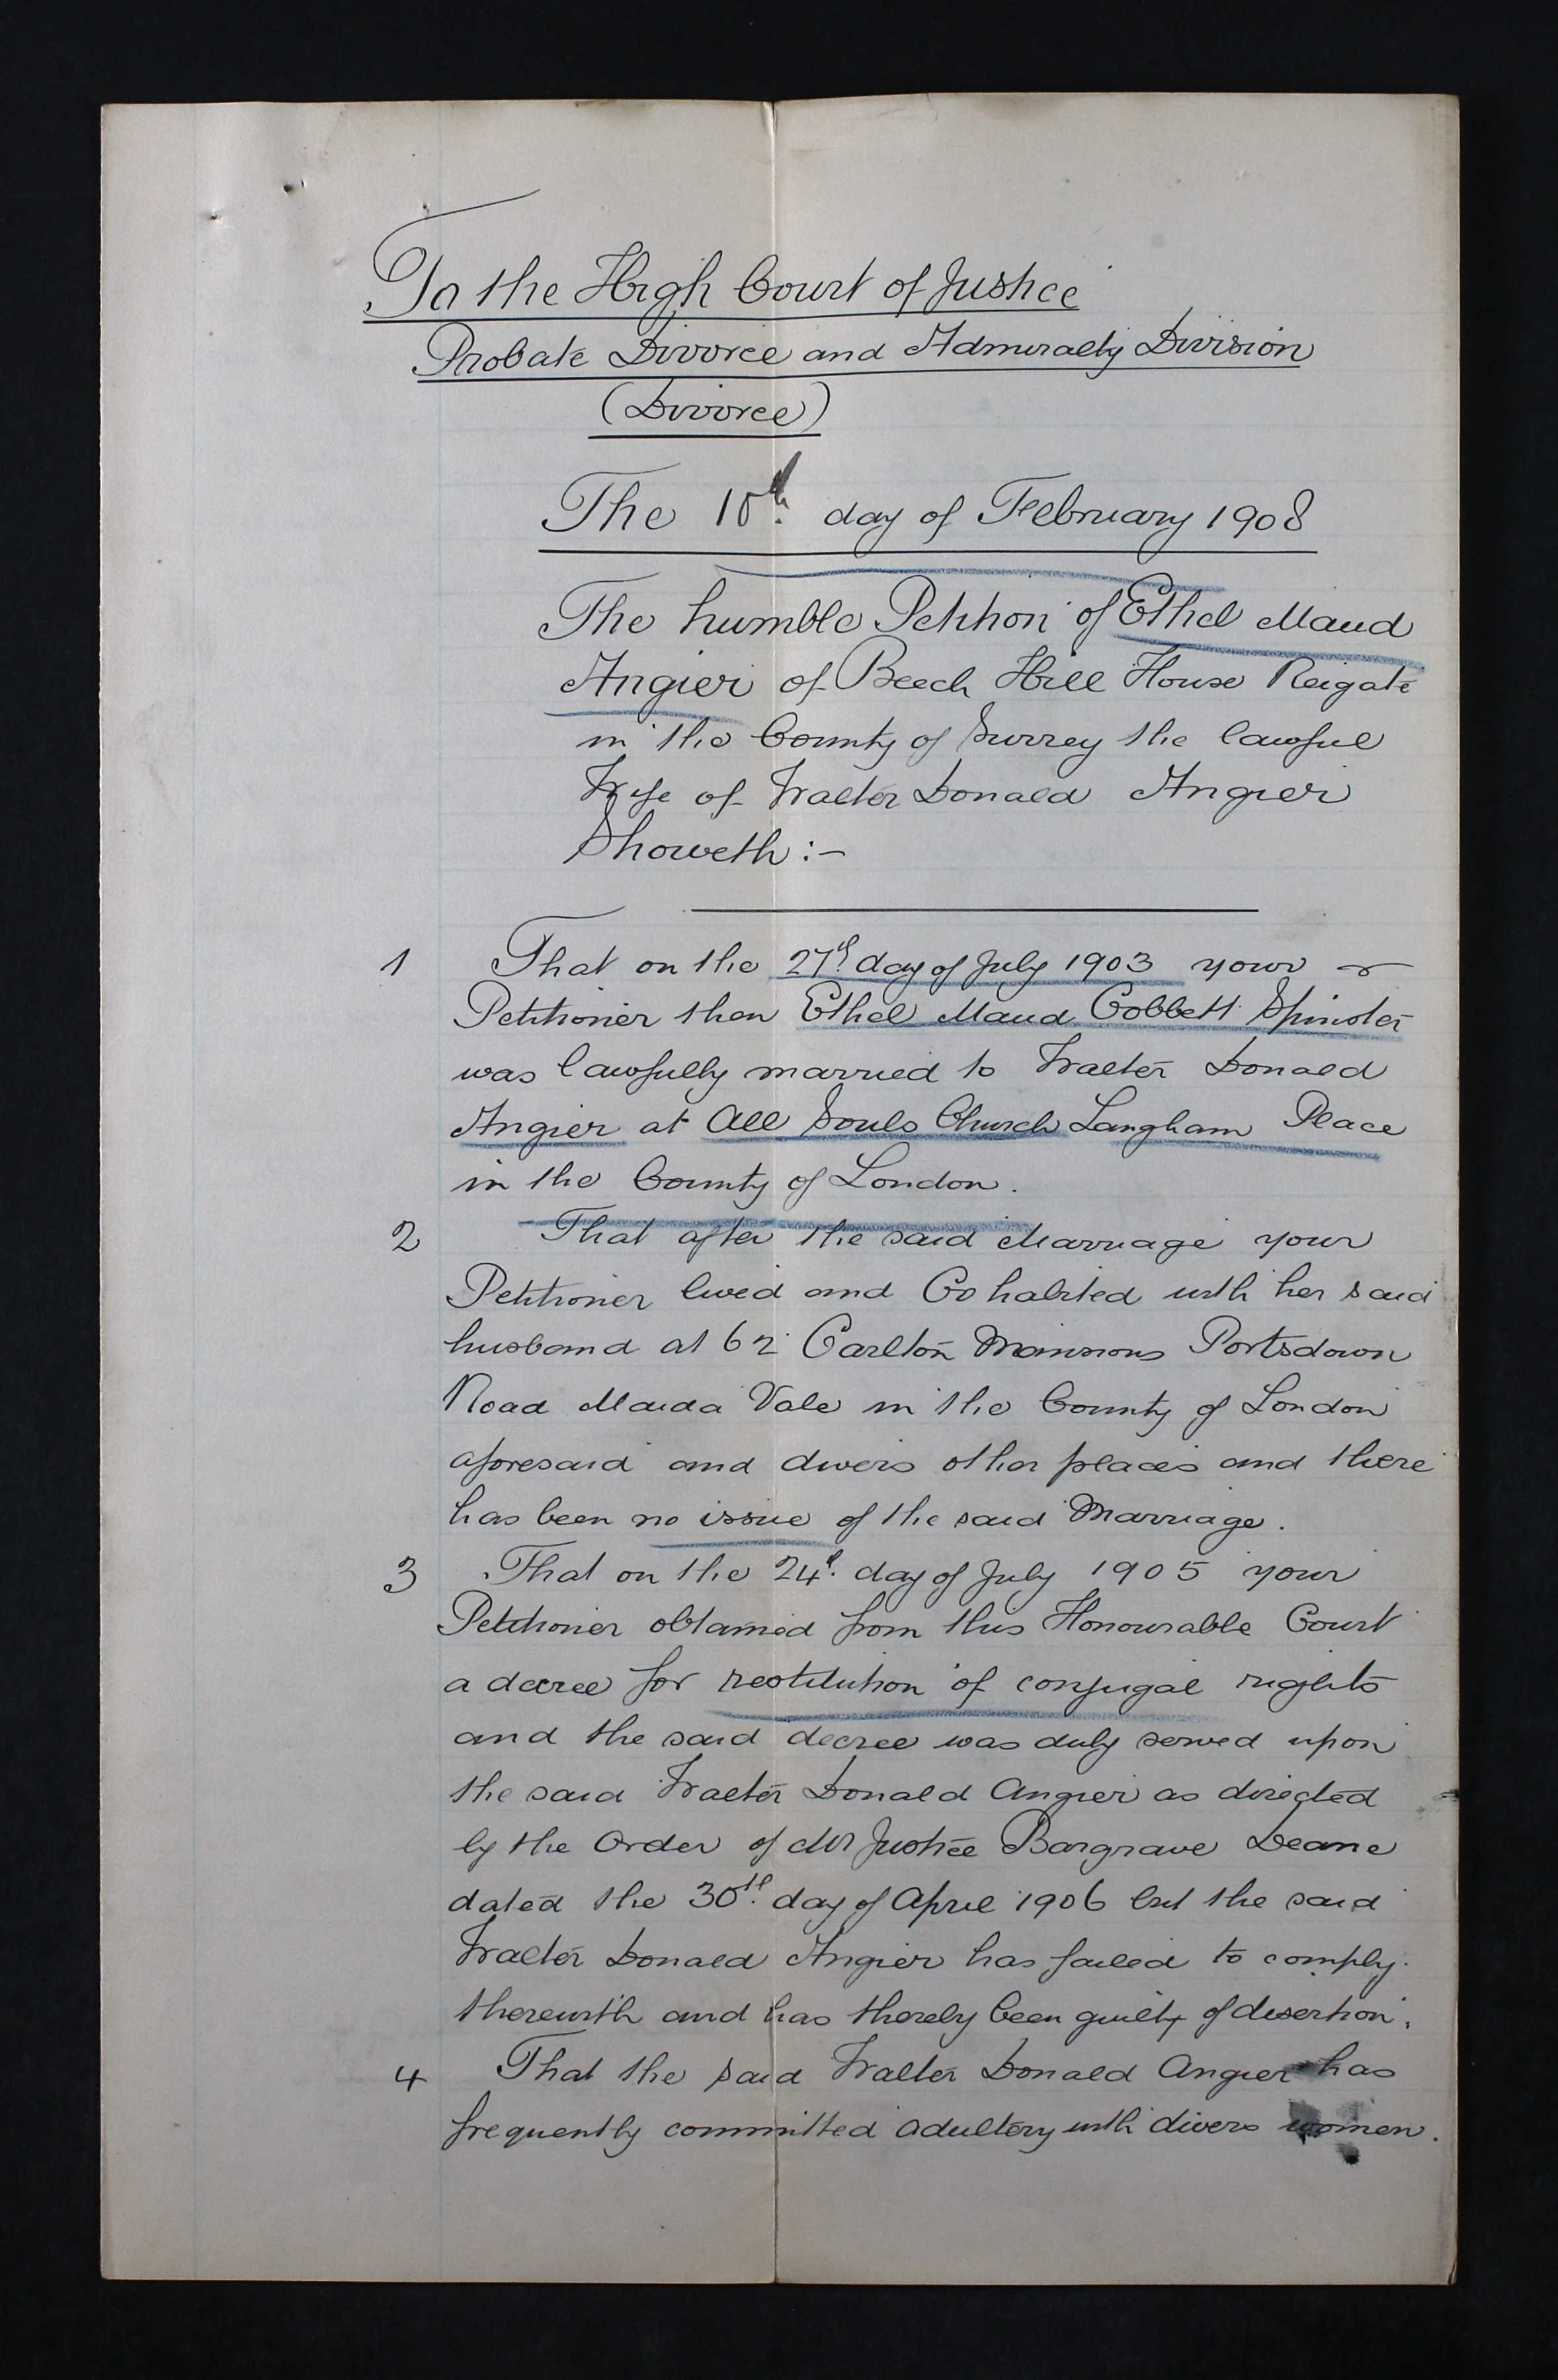 To the High Court of Justice
Probate Divorce and Admiralty Division
(Divorce)
The 10th day of February 1908
The humble Petition of Ethel Maud
Angier of Beech Hill House Reigate
in the County of Surrey the lawful
Wife of Walter Donald Angier
Showeth :-
1 That on the 27th day of July 1903 your
Petitioner then Ethel Maud Cobbett Spinster
was lawfully married to Walter Donald
Angier at All Souls Church Langham Place
in the County of London.
2 That after the said Marriage your
Petitioner lived and Cohabited with her said
husband at 62 Carlton Mansions Portsdown
Road Maida Vale in the County of London
aforesaid and divers other places and there
has been no issue of the said Marriage.
3 That on the 24th day of July 1905 your
Petitioner obtained from this Honourable Court
a decree for restitution of conjugal rights
and the said decree was duly served upon
the said Walter Donald Angier as directed
by the Order of Mr Justice Bargrave Deane
dated the 30th day of April 1906 but the said
Walter Donald Angier has failed to comply
therewith and has thereby been guilty of desertion.
4 That the said Walter Donald Angier has
frequently committed adultery with divers women.